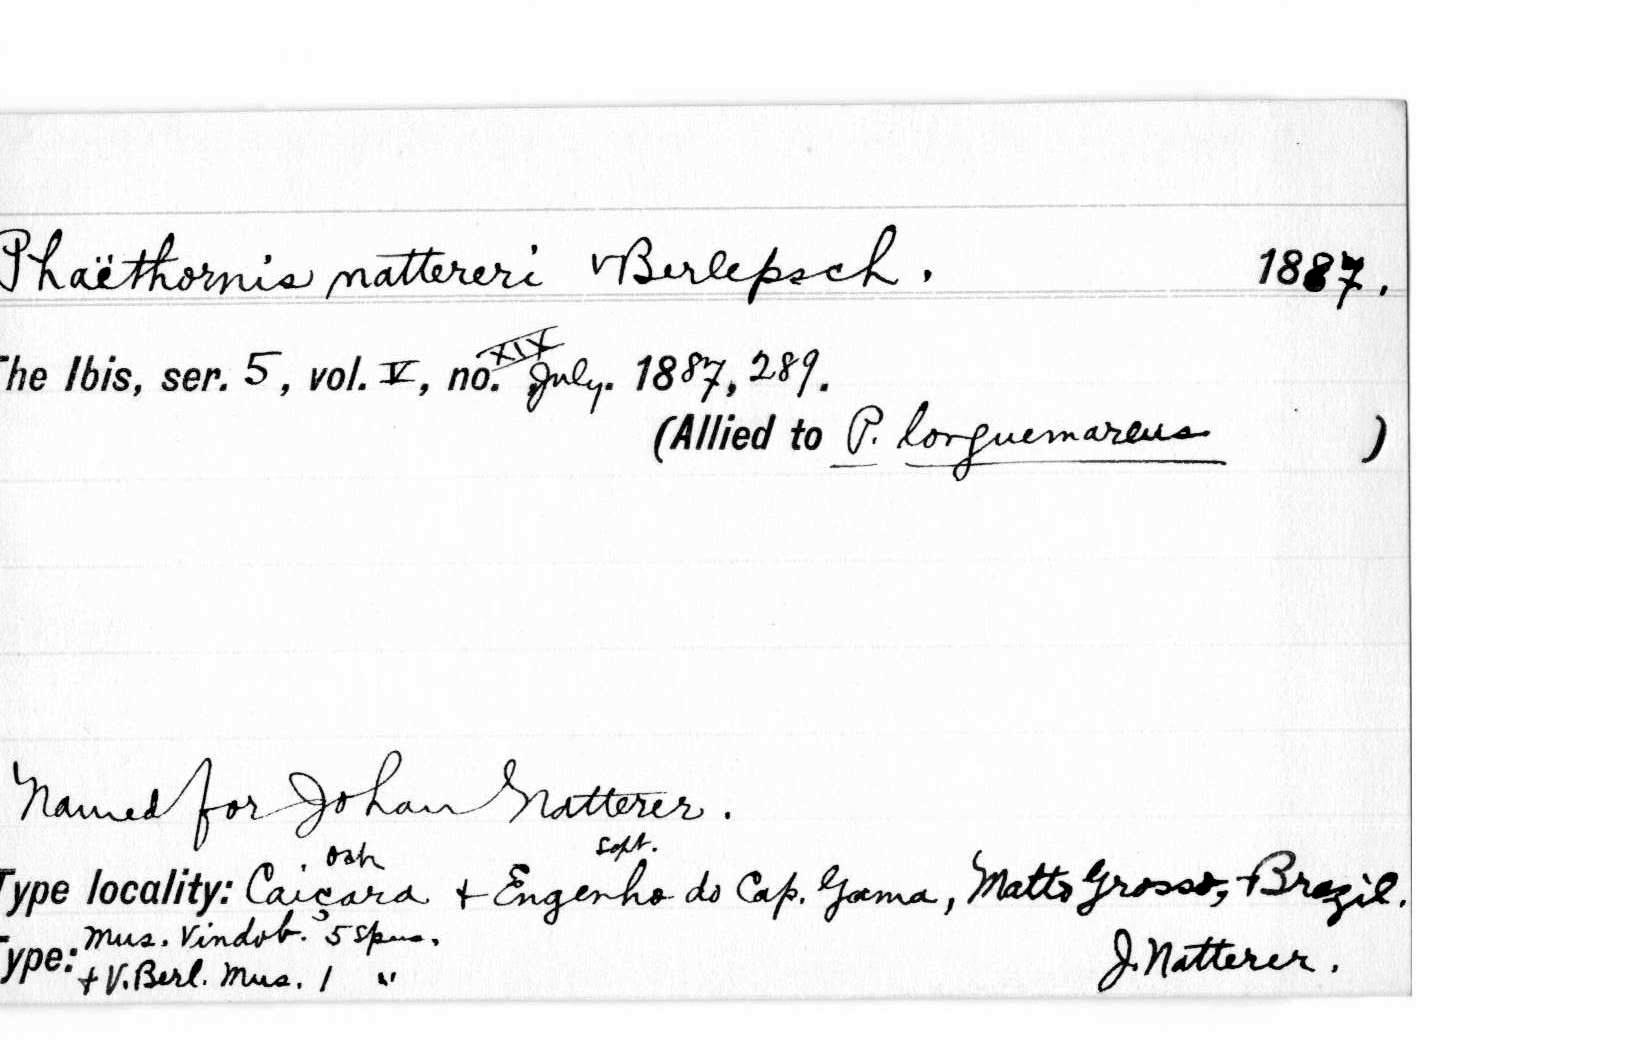 Phaëthornis nattereri vBerlepsch. 1887.
The Ibis, ser. 5, vol. V, no. XIX July. 1887, 289.
(Allied to P. longuemareus )
Named for Johan Natterer.
Sept.
Type locality: Caiçara + Engenho do Cap. Gama, Matto Grosso, Brazil.
Type: Mus. Vindob. 5 spms. J. Natterer.
+ V. Berl. Mus. 1 "